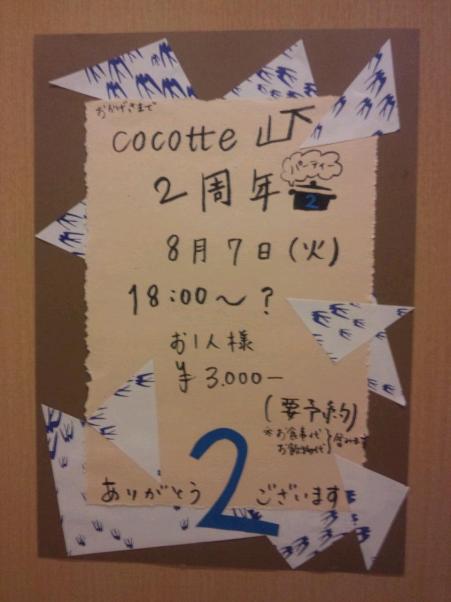 おかげさまで
cocotte 山下
2周年
パーティー
2
8月7日(火)
18:00〜?
お1人様
¥3.000-
(要予約)
※お食事代
お飲物代}含みます
ありがとう2ございます